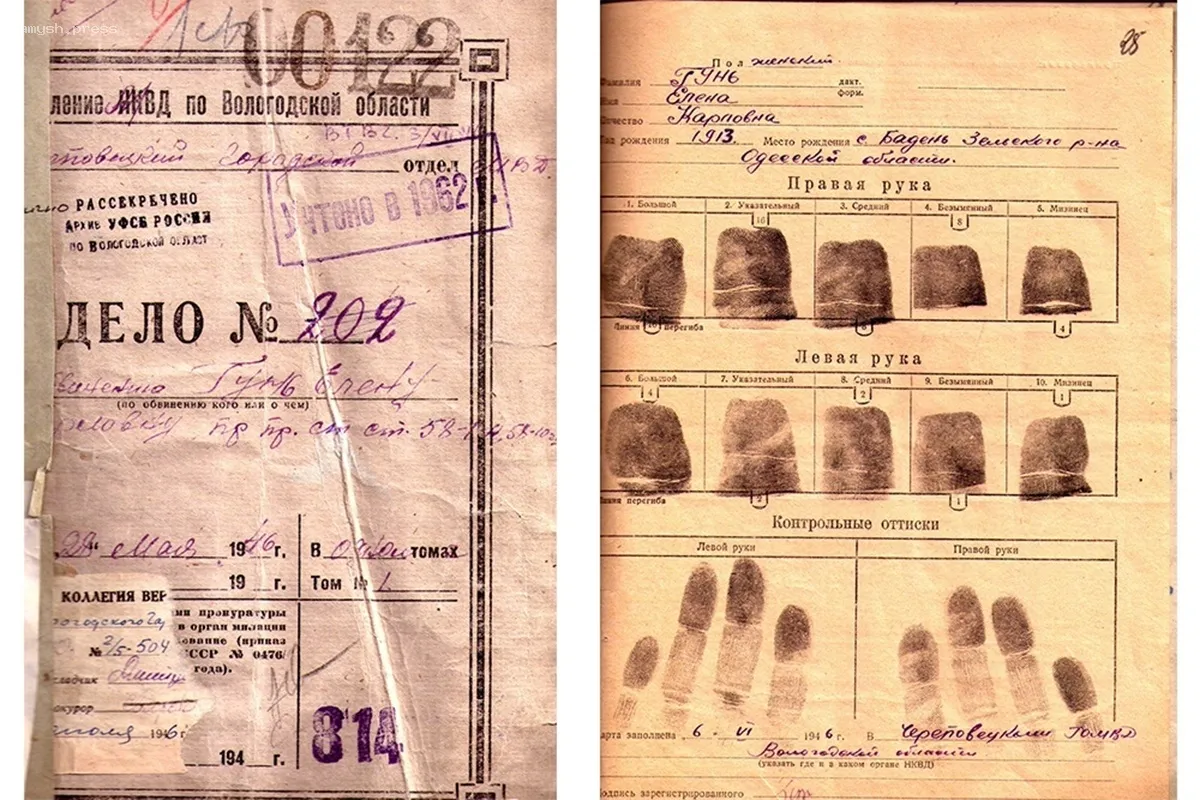 amush.press
00122
ление НКВД по Вологодской области
повецкий городской отдел МВД
УЧТЕНО В 1962 г.
РАССЕКРЕЧЕНО
Архив УФСБ РОССИИ
по Вологодской област
ДЕЛО № 202
Гунь Елену
(по обвинению кого или о чем)
по пр. ст. ст. 58-1а, 58-10
мая 1946 г.
В одном томах
19 г.
Том № 1
КОЛЛЕГИЯ ВЕР
№ 2/5-504
окурор
1946 г
ми прокуратуры
в орган милиции
ование (приказ
ССР № 0476
года).
194 г.
814
25
Пол женский
Фамилия Гунь
дакт.
форм.
Имя Елена
Отчество Карповна
Год рождения 1913. Место рождения с. Бадень Зельского р-на
Одесской области.
Правая рука
1. Большой 2. Указательный 3. Средний 4. Безыменный 5. Мизинец
16 8
Линия перегиба
16 8 4
Левая рука
6. Большой 7. Указательный 8. Средний 9. Безыменный 10. Мизинец
4 2 1
Линия перегиба
2 1
Контрольные оттиски
Левой руки Правой руки
арта заполнена 6. VI 1946 г. В Череповецким ГОМВД
Вологодской области
(указать где и в каком органе НКВД)
одпись зарегистрированного